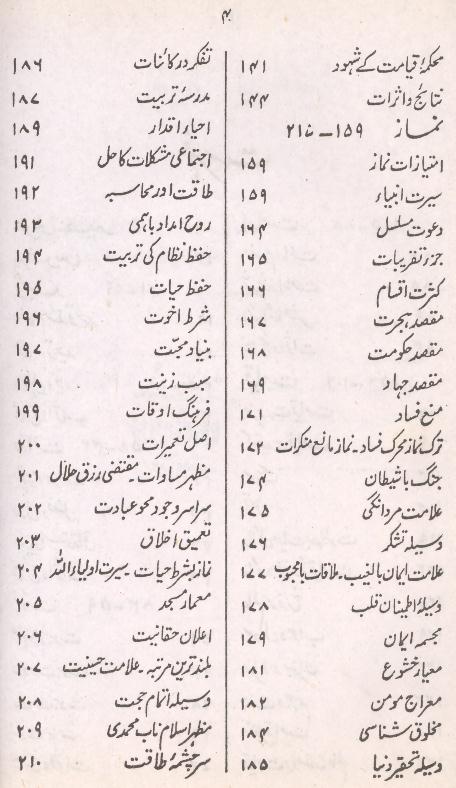 ۴
محکمۂ قیامت کے شہود ۱۴۱
نتائج و اثرات ۱۴۴
نماز ۱۵۹ — ۲۱۵
امتیازات نماز ۱۵۹
سیرت انبیاء ۱۵۹
دعوت مسلسل ۱۶۴
جزء تقریبات ۱۶۵
کثرت اقسام ۱۶۶
مقصد ہجرت ۱۶۷
مقصد حکومت ۱۶۸
مقصد جہاد ۱۶۹
منع فساد ۱۷۱
ترک نماز محرک فساد ۔ نماز مانع منکرات ۱۷۲
جنگ با شیطان ۱۷۴
علامت مردانگی ۱۷۵
وسیلۂ تشکر ۱۷۶
علامت ایمان بالغیب ۔ ملاقات با محبوب ۱۷۷
وسیلۂ اطمینان قلب ۱۷۸
مجسمہ ایمان ۱۷۹
معیار خشوع ۱۸۱
معراج مومن ۱۸۲
مخلوق شناسی ۱۸۴
وسیلہ تحقیر دنیا ۱۸۵
تفکر در کائنات ۱۸۶
مدرسۂ تربیت ۱۸۷
احیاء اقدار ۱۸۹
اجتماعی مشکلات کا حل ۱۹۱
طاقت اور محاسبہ ۱۹۲
روح امداد باہمی ۱۹۳
حفظ نظام کی تربیت ۱۹۴
حفظ حیات ۱۹۵
شرط اخوت ۱۹۶
بنیاد محبت ۱۹۷
سبب زینت ۱۹۸
فرہنگ اوقات ۱۹۹
اصل تعمیرات ۲۰۰
مظہر مساوات ۔ مقتضی رزق حلال ۲۰۱
سراسر وجود محو عبادت ۲۰۲
تعمیق اخلاق ۲۰۳
نماز بشرط حیات ۔ سیرت اولیاء اللہ ۲۰۴
معمار مسجد ۲۰۵
اعلان حقانیت ۲۰۶
بلند ترین مرتبہ ۔ علامت حسینیت ۲۰۷
وسیلہ اتمام حجت ۲۰۸
مظہر اسلام ناب محمدی ۲۰۹
سرچشمۂ طاقت ۲۱۰